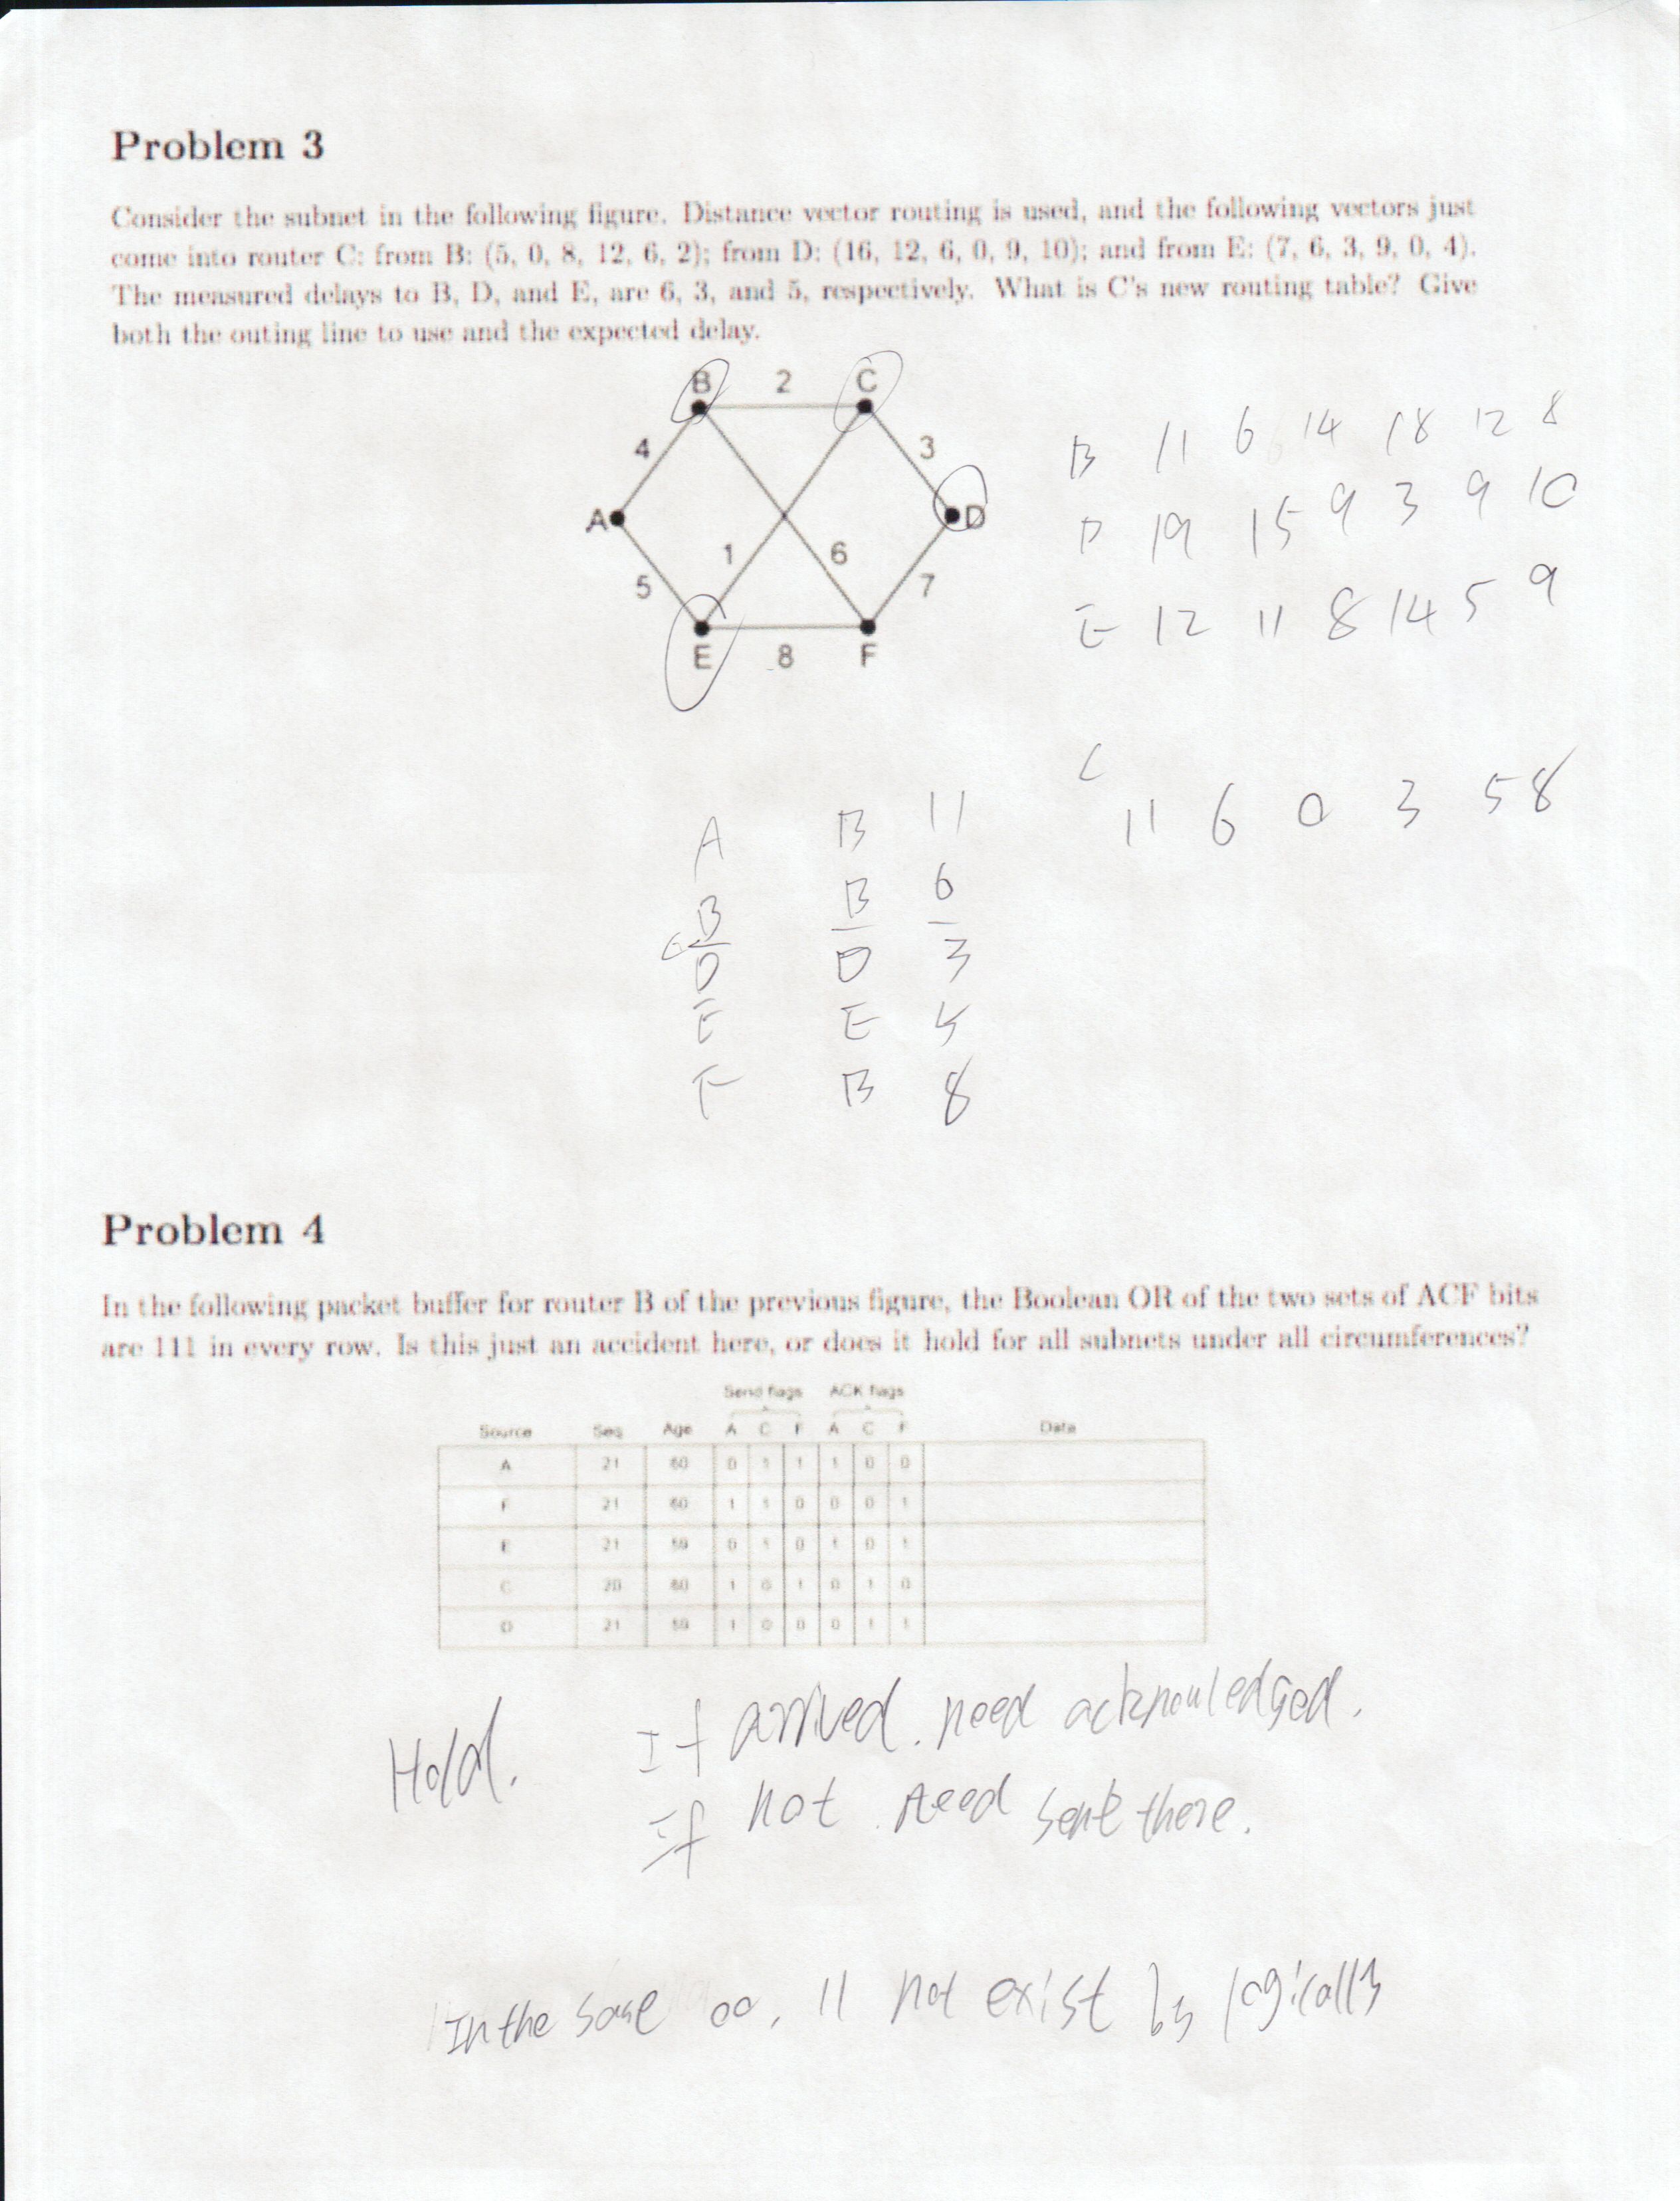 Problem 3
Consider the subnet in the following figure. Distance vector routing is used, and the following vectors just
come into router C: from B: (5, 0, 8, 12, 6, 2); from D: (16, 12, 6, 0, 9, 10); and from E: (7, 6, 3, 9, 0, 4).
The measured delays to B, D, and E, are 6, 3, and 5, respectively. What is C's new routing table? Give
both the outing line to use and the expected delay.
B 2 C
4 3
A D
1 6
5 7
E 8 F
B 11 6 14 18 12 8
D 19 15 9 3 9 10
E 12 11 8 14 5 9
C
11 6 0 3 5 8
A B 11
B B 6
C — —
D D 3
E E 5
F B 8
Problem 4
In the following packet buffer for router B of the previous figure, the Boolean OR of the two sets of ACF bits
are 111 in every row. Is this just an accident here, or does it hold for all subnets under all circumferences?
Send flags ACK flags
Source Seq Age A C F A C F Data
A 21 60 0 1 1 1 0 0
F 21 60 1 1 0 0 0 1
E 21 59 0 1 0 1 0 1
C 20 60 1 0 1 0 1 0
D 21 59 1 0 0 0 1 1
Hold. If arrived. need acknowledged.
If not. need sent there.
In the same 00, 11 not exist by logically